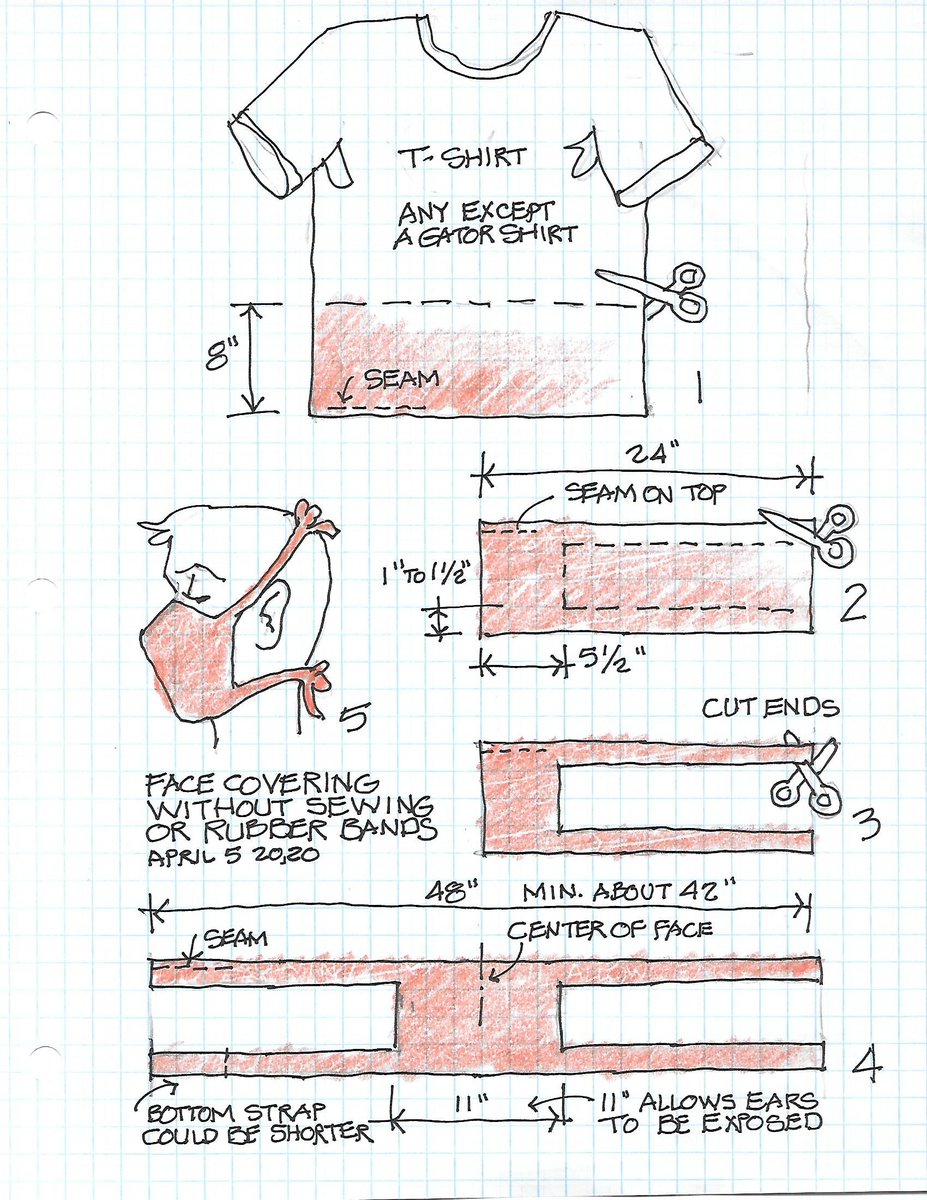 T-SHIRT
ANY EXCEPT
A GATOR SHIRT
8"
SEAM
1
24"
SEAM ON TOP
1" TO 1 1/2"
2
5 1/2"
5
CUT ENDS
3
FACE COVERING
WITHOUT SEWING
OR RUBBER BANDS
APRIL 5 20,20
48" MIN. ABOUT 42"
SEAM
CENTER OF FACE
4
BOTTOM STRAP
COULD BE SHORTER
11"
11" ALLOWS EARS
TO BE EXPOSED